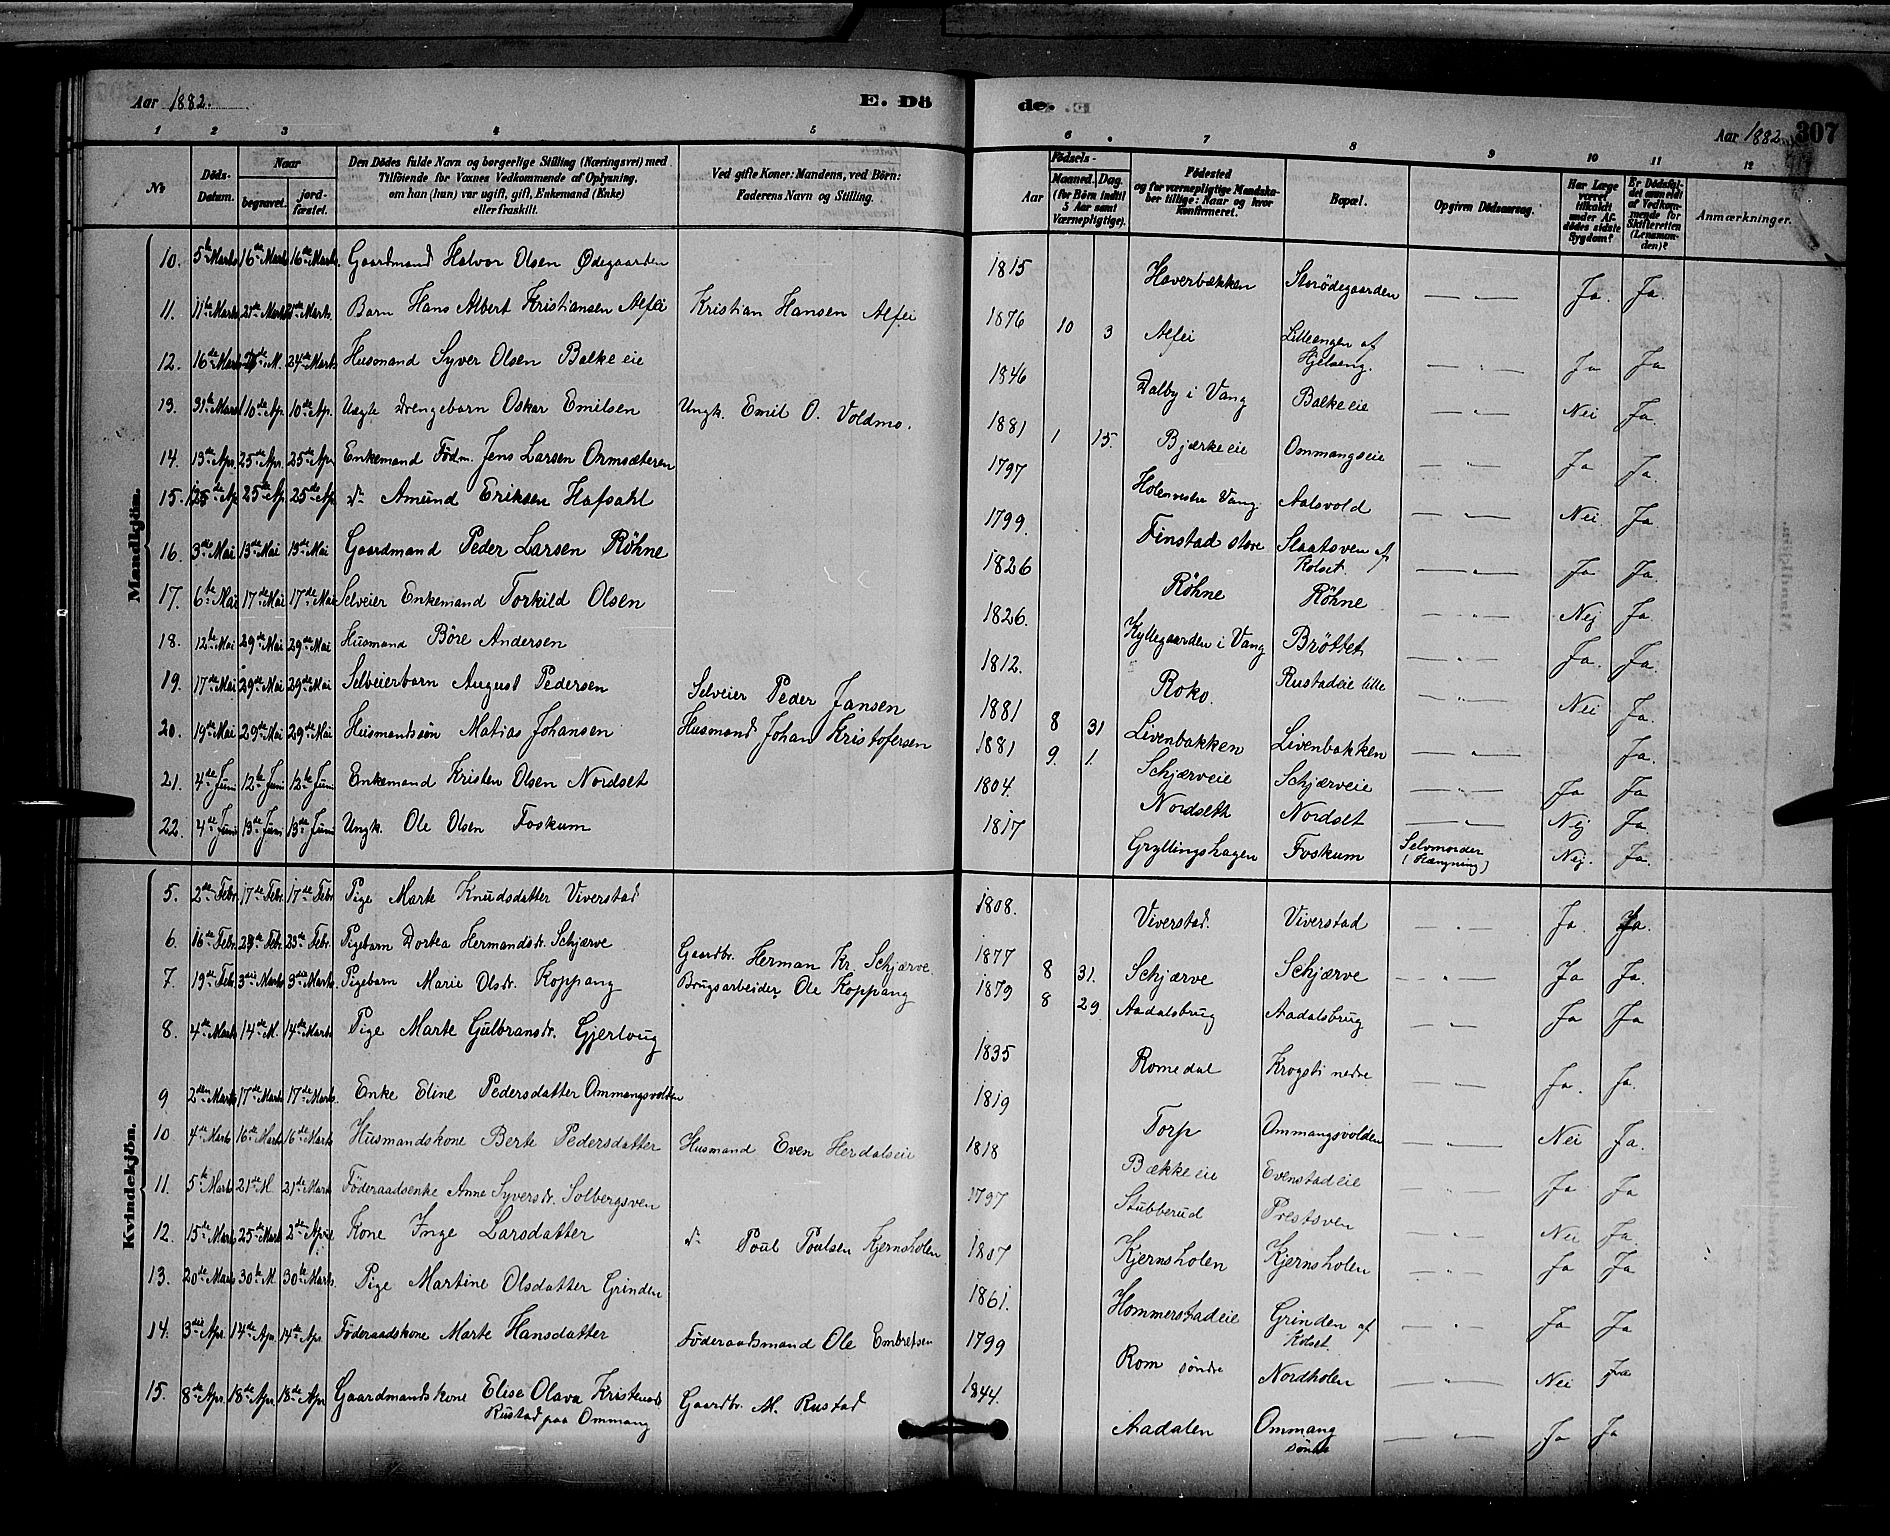 Aar 1882.
E. Dö
de.
Aar 1882. 307
1 2 3 4 5 6 7 8 9 10 11 12
No
Döds-Datum.
Naar
begravet.
jordfæstet.
Den Dödes fulde Navn og borgerlige Stilling (Næringsvei) med
Tilföiende for Voxnes Vedkommende af Oplysning,
om han (hun) var ugift, gift, Enkemand (Enke)
eller fraskilt.
Ved gifte Koner: Mandens, ved Börn:
Faderens Navn og Stilling.
Födsels-
Aar
Maaned. Dag.
(for Börn indtil 5 Aar samt Værnepligtige).
Födested
og for værnepligtige Mandskaber tillige: Naar og hvor konfirmeret.
Bopæl.
Opgiven Dödsaarsag.
Har Læge været tilkaldt under Afdödes sidste Sygdom?
Er Dödsfaldet anmeldt af Vedkommende for Skifteretten (Lensmanden)?
Anmærkninger.
Mandkjön.
10. 5te Marts 16de Marts 16de Marts. Gaardmand Halvor Olsen Ødegaarden 1815 Haverbakken Storödegaarden — " — Ja. Ja.
11. 11te Marts 21de Marts 21de Marts. Barn Hans Albert Kristiansen Alfei Kristian Hansen Alfei 1876 10 3 Alfei Lilleengen af Hjelseng. — " — Ja Ja
12. 16de Marts 24de M. 24de Marts Husmand Syver Olsen Balkeeie 1846 Dalby i Vang Balkeeie — " — Nei Ja.
13. 31te Marts 10de Ap. 10de Ap. Uægte Drengebarn Oskar Emilsen Ungk. Emil O. Voldmo. 1881 1 15. Bjærkeeie Ommangseie — " — Ja Ja.
14. 13de Apr. 25de Ap. 25de Ap Enkemand Födm. Jens Larsen Ormsæteren 1797 Holen vestre Vang Aalsvold — " — Nei. Ja
15. 25de Ap. 25de Ap. do Amund Eriksen Hafsahl 1799. Finstad store Slaatsven af Kolset — " — Ja Ja.
16. 3de Mai 13de Mai 13de Mai Gaardmand Peder Larsen Röhne 1826 Röhne Röhne — " — Nej Ja.
17. 6te Mai 17de Mai 17de Mai Selveier Enkemand Torkild Olsen 1826. Kyllegaarden i Vang Bröttet — " — Ja. Ja.
18. 12te Mai 29de Mai 29de Mai Husmand Böre Andersen 1812. Roko. Rustadeie lille — " — Nei Ja.
19. 17de Mai 29de Mai 29de Mai Selveierbarn August Pedersen Selveier Peder Jansen 1881 8 31 Livenbakken Livenbakken — " — Ja.
20. 19de Mai 29de Mai 29de Mai Husmandssön Matias Johansen Husmand Johan Kristofersen 1881 9. 1. Schjærveie Schjærveie — " — Ja Ja
21. 4de Juni 12te Juni 12te Juni Enkemand Kristen Olsen Nordset 1804. Nordseth Nordset — " — Nej Ja.
22. 4de Juni 13de Juni 13de Juni Ungk. Ole Olsen Foskum 1817 Gryllingshagen Foskum Selvmorder (Hængning) Nej. Ja.
Kvindekjön.
5. 2de Febr. 17de Febr. 17de Febr Pige Marte Knudsdatter Viverstad 1808. Viverstad. Viverstad — " — Ja. Ja.
6. 16de Febr. 23de Febr. 23de Febr. Pigebarn Dortea Hermandsdr. Schjærve Gaardbr. Herman Kr. Schjærve. 1877 8 31. Schjærve Schjærve — " — Ja Ja.
7. 19de Febr. 3die Marts 3die Marts. Pigebarn Marie Olsdr. Koppang Brugsarbeider Ole Koppang 1879 8 29. Aadalsbrug Aadalsbrug — " — Ja Ja
8. 4de Marts 14de M. 14de Marts Pige Marte Gulbransdr. Gjerlvug 1835 Romedal Krogsti nedre — " — Ja. Ja.
9 2den Marts 17de Marts 17de Marts. Enke Eline Pedersdatter Ommangsvolden 1819 Torp Ommangsvolden — " — Nei Ja.
10 4de Marts 16de Marts 16de Marts Husmandskone Berte Pedersdatter Husmand Even Herdalseie 1818 Bækkeeie Evenstadeie — " — Ja. Ja
11. 5te Marts 21de M. 21de Marts Föderaadsenke Anne Syversdr. Solbergsven 1797 Stubberud Prestsven — " — Nei Ja.
12. 15de Marts 25de Marts 2den April Kone Inge Larsdatter do Poul Poulsen Kjernsholen 1807 Kjernsholen Kjernsholen — " — Ja Ja
13. 20de Marts 30te M. 30te Marts. Pige Martine Olsdatter Grinden 1861. Hommerstadeie Grinden af Kolset. — " — Ja Ja
14. 3die Apr. 14de Apr. 14de Apr. Föderaadskone Marte Hansdatter Föderaadsmand Ole Embretsen 1799 Rom söndre Nordholen — " — Nei Ja
15. 8de Apr. 18de Apr. 18de Apr Gaardmandskone Elise Olava
Rustad paa Ommang Gaardbr. M. Rustad 1844. Aadalen Ommang söndr — " — Ja Ja